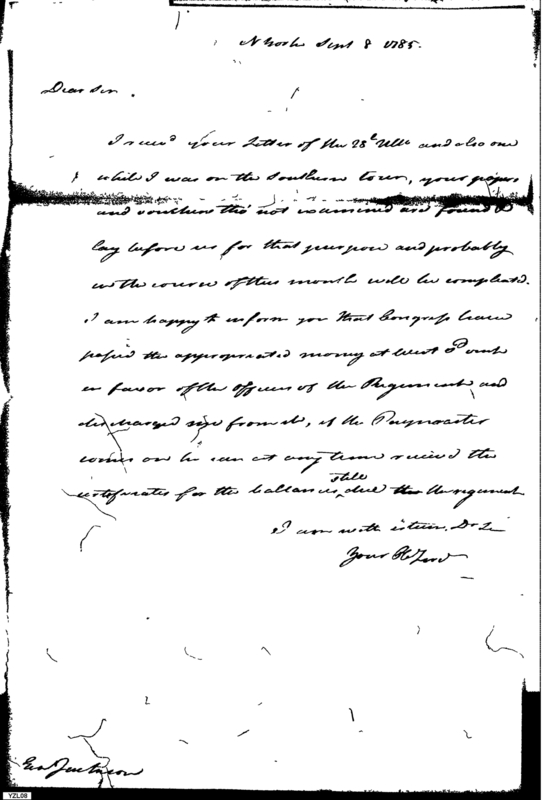 N York Sept 8 1785.
Dear Sir
I recd your Letter of the 28t Ulto and also one
while I was on the Southern tour, your papers
and vouchers tho' not examined are found &
lay before us for that purpose and probably
in the course of this month will be compleated.
I am happy to inform you that Congress have
passed the appropriated money at West Point
in favor of the Officers of the Regiment and
discharged me from it, if the Paymaster
comes on he can at any time receive the
certificates for the ballances still due the Regiment
I am with esteem Dr Sir
Your Ob Serv
Geo Jackson
YZL08